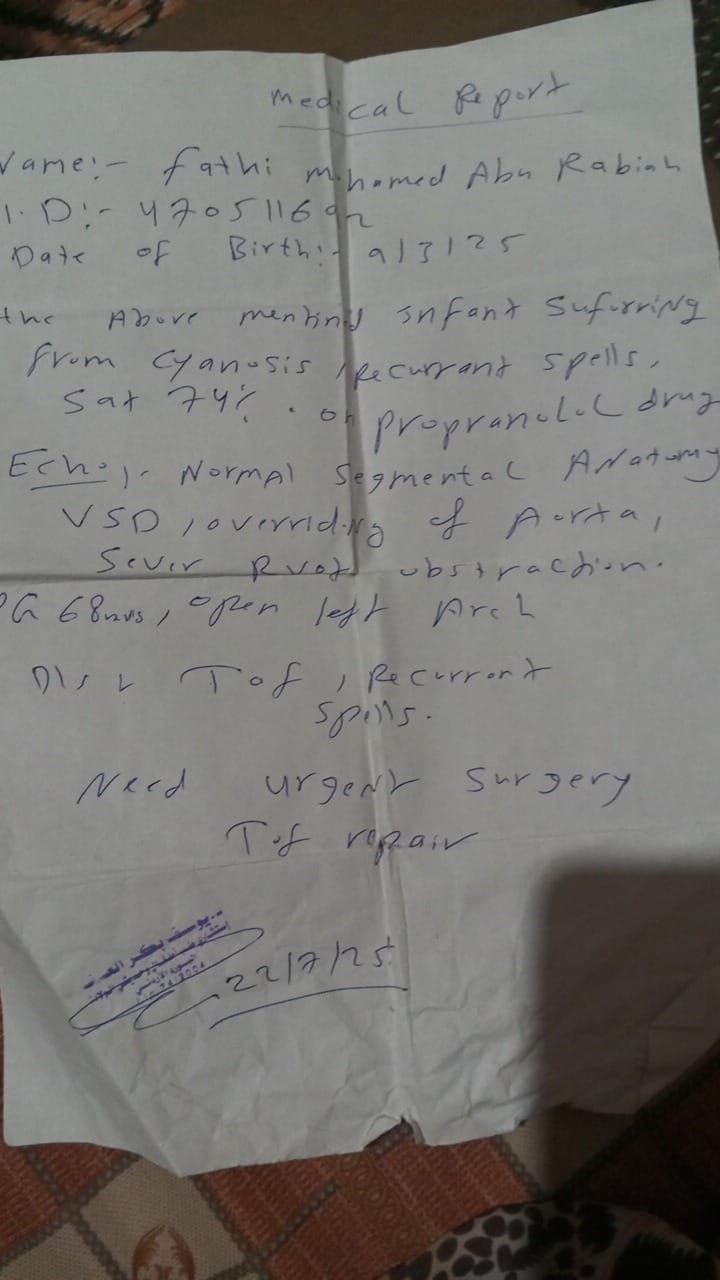 Medical Report
Name:- Fathi Mohamed Abu Rabiah
I.D:- 470511692
Date of Birth:- 9/3/25
the Above mentind infant Sufurring
from cyanosis, recurrant spells,
Sat 74%. on propranolol drug
Echo:- Normal Segmental Anatomy
VSD, overriding of Aorta,
Sever RVOT obstraction.
PG 68 , open left Arch
Tof, Recurrent
spills.
Need urgent surgery
Tof repair
د. يوسف بكر
22/7/25